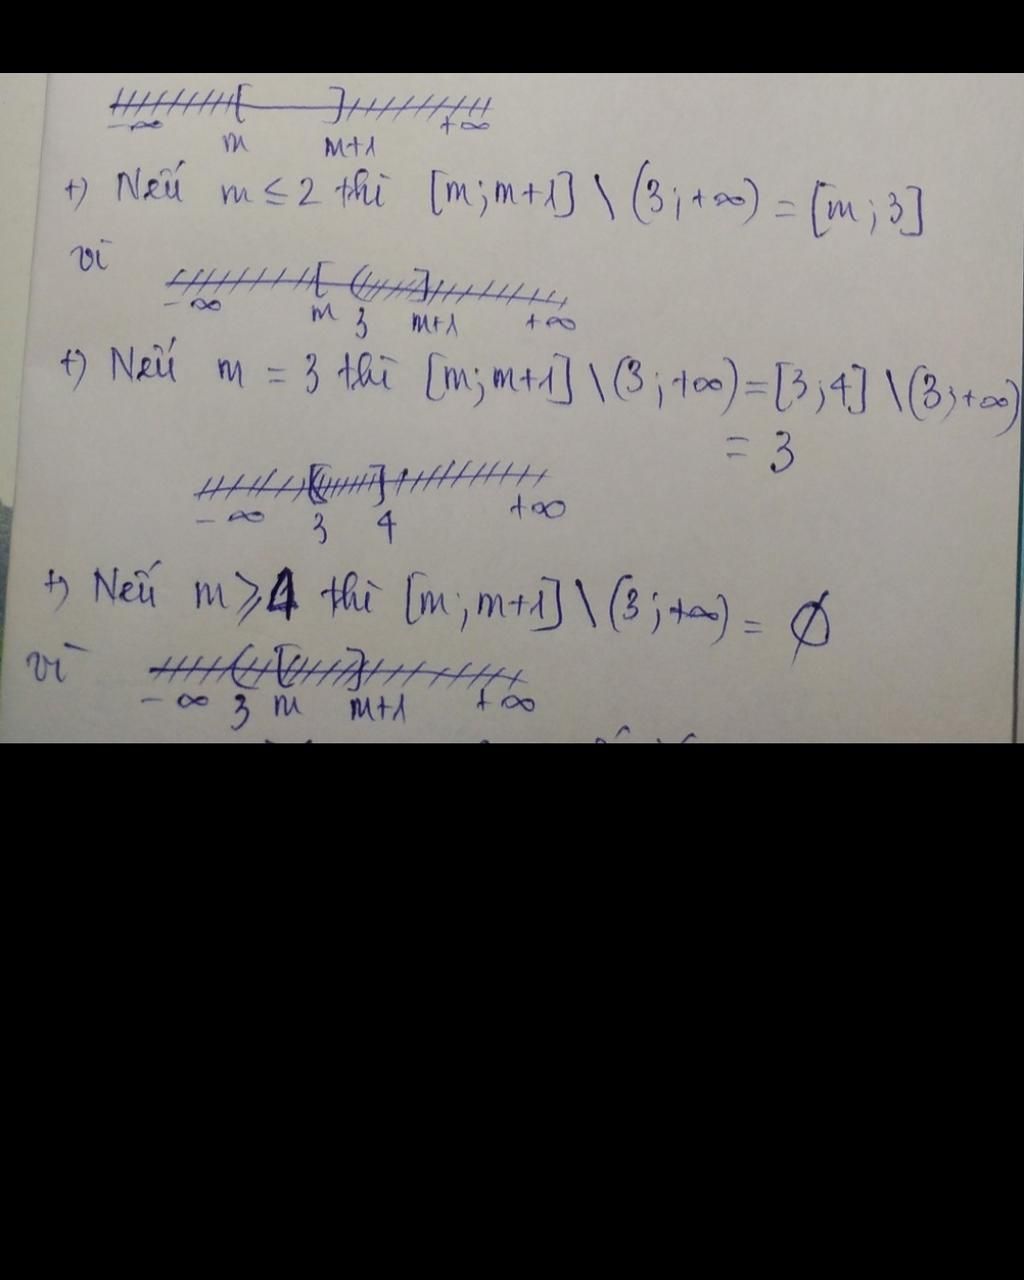 -∞ m m+1 +∞
+) Nếu m ≤ 2 thì [m; m+1] \ (3; +∞) = [m; 3]
vì
-∞ m 3 m+1 +∞
+) Nếu m = 3 thì [m; m+1] \ (3; +∞) = [3; 4] \ (3; +∞)
= 3
-∞ 3 4 +∞
+) Nếu m ≥ 4 thì [m; m+1] \ (3; +∞) = ∅
vì
-∞ 3 m m+1 +∞